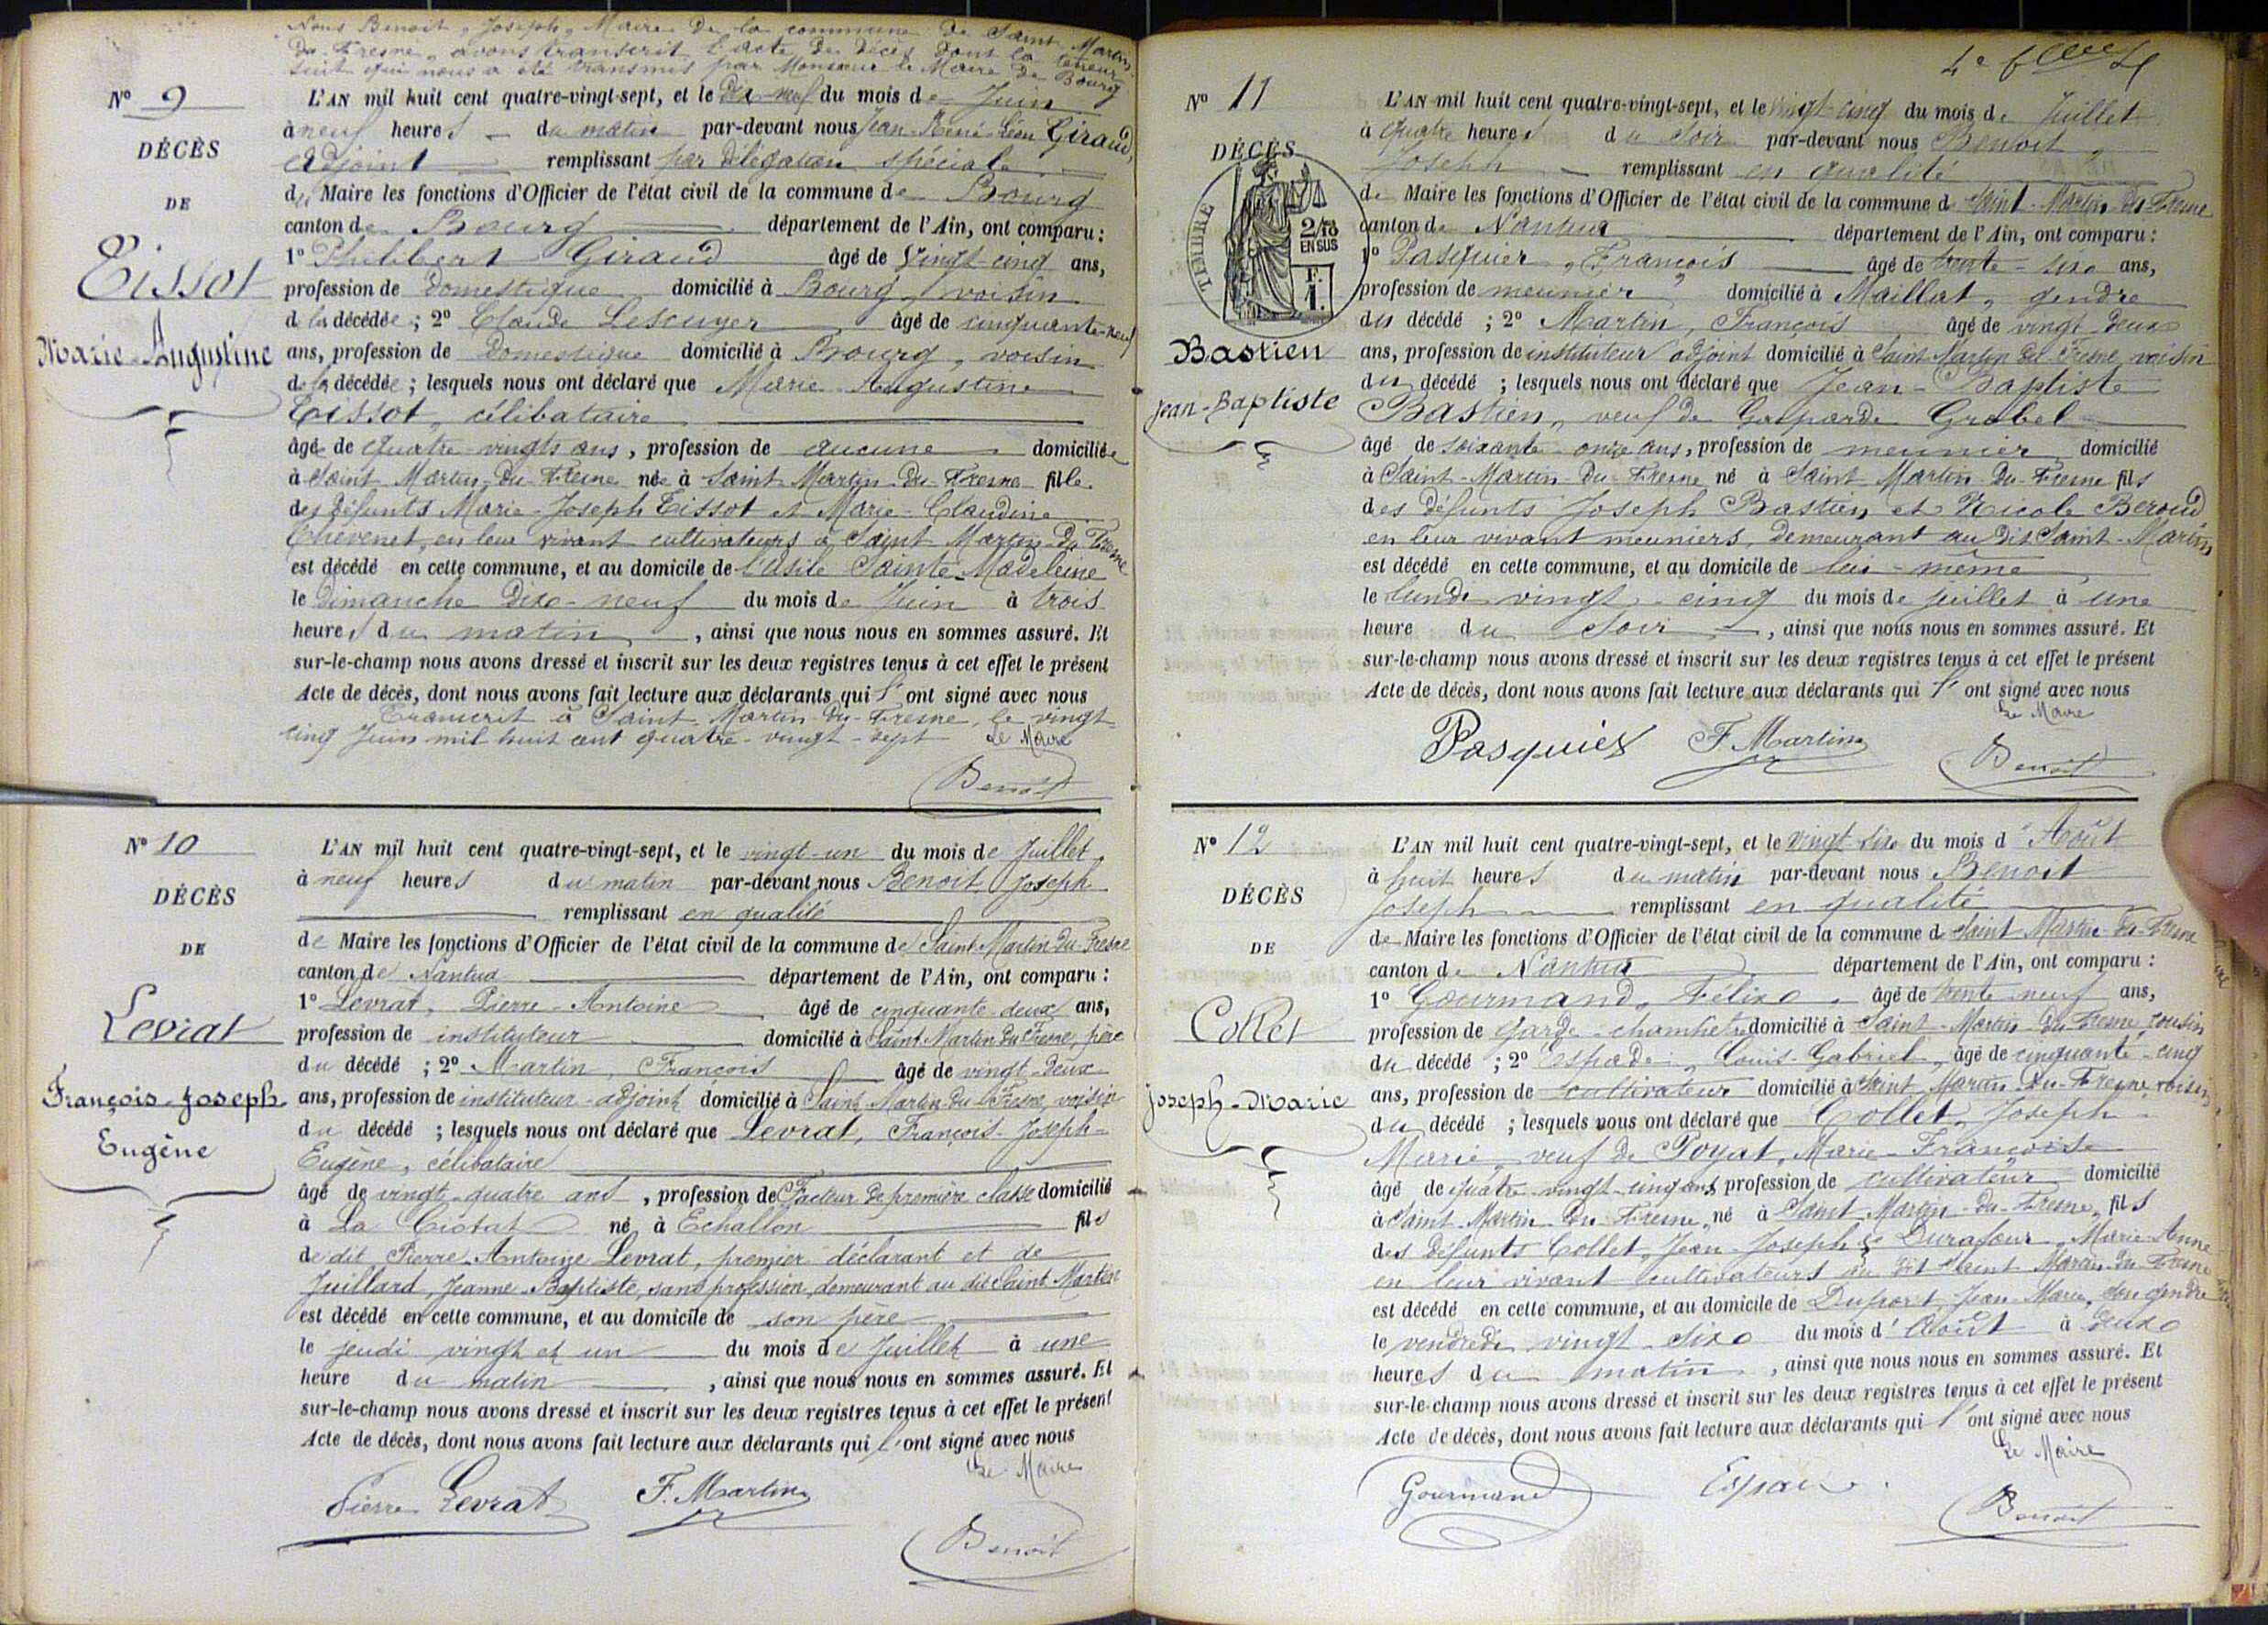 Nous Benoit, Joseph, Maire de la commune de Saint Martin
du-Fresne, avons transcrit l'acte de décès dont la teneur
suit qui nous a été transmis par Monsieur le Maire de Bourg
N° 9
DÉCÈS
DE
Tissot
Marie-Augustine
L'AN mil huit cent quatre-vingt-sept, et le dix-neuf du mois de Juin
à neuf heures du matin par-devant nous Jean-René-Léon Giraud,
adjoint remplissant par délégation spéciale
du Maire les fonctions d'Officier de l'état civil de la commune de Bourg
canton de Bourg département de l'Ain, ont comparu :
1° Philibert Giraud âgé de vingt-cinq ans,
profession de domestique domicilié à Bourg, voisin
de la décédée ; 2° Claude Lescuyer âgé de cinquante-neuf
ans, profession de domestique domicilié à Bourg, voisin
de la décédée ; lesquels nous ont déclaré que Marie-Augustine
Tissot, célibataire
âgée de quatre-vingts ans, profession de aucune domiciliée
à Saint-Martin-du-Fresne née à Saint-Martin-du-Fresne fille
des défunts Marie-Joseph Tissot et Marie-Claudine
Chevenet, en leur vivant cultivateurs à Saint Martin-du-Fresne
est décédé en cette commune, et au domicile de l'asile Sainte-Madeleine
le dimanche dix-neuf du mois de Juin à trois
heures du matin, ainsi que nous nous en sommes assuré. Et
sur-le-champ nous avons dressé et inscrit sur les deux registres tenus à cet effet le présent
Acte de décès, dont nous avons fait lecture aux déclarants qui l'ont signé avec nous
Transcrit à Saint-Martin-du-Fresne, le vingt-
cinq Juin mil huit cent quatre-vingt-sept Le Maire
Benoit
N° 10
DÉCÈS
DE
Levrat
François-Joseph
Eugène
L'AN mil huit cent quatre-vingt-sept, et le vingt-un du mois de Juillet
à neuf heures du matin par-devant nous Benoit, Joseph
remplissant en qualité
de Maire les fonctions d'Officier de l'état civil de la commune de Saint-Martin-du-Fresne
canton de Nantua département de l'Ain, ont comparu :
1° Levrat, Pierre-Antoine âgé de cinquante-deux ans,
profession de instituteur domicilié à Saint-Martin-du-Fresne, père
du décédé ; 2° Martin, François âgé de vingt-deux
ans, profession de instituteur-adjoint domicilié à Saint-Martin-du-Fresne, voisin
du décédé ; lesquels nous ont déclaré que Levrat, François-Joseph-
Eugène, célibataire
âgé de vingt-quatre ans, profession de Facteur de première classe domicilié
à La Ciotat né à Echallon fils
de dit Pierre-Antoine Levrat, premier déclarant et de
Juillard, Jeanne-Baptiste, sans profession, demeurant au dit Saint Martin
est décédé en cette commune, et au domicile de son père
le jeudi vingt et un du mois de Juillet à une
heure du matin, ainsi que nous nous en sommes assuré. Et
sur-le-champ nous avons dressé et inscrit sur les deux registres tenus à cet effet le présent
Acte de décès, dont nous avons fait lecture aux déclarants qui l'ont signé avec nous
Le Maire
Pierre Levrat F. Martin
Benoit
N° 11
DÉCÈS
TIMBRE
2/10
EN SUS
F.
1.
Bastien
Jean-Baptiste
L'AN mil huit cent quatre-vingt-sept, et le vingt-cinq du mois de Juillet
à quatre heures du soir par-devant nous Benoit,
Joseph remplissant en qualité
de Maire les fonctions d'Officier de l'état civil de la commune de Saint-Martin-du-Fresne
canton de Nantua département de l'Ain, ont comparu :
1° Pasquier, François âgé de trente-six ans,
profession de meunier domicilié à Maillat, gendre
du décédé ; 2° Martin, François âgé de vingt-deux
ans, profession de instituteur adjoint domicilié à Saint-Martin-du-Fresne, voisin
du décédé ; lesquels nous ont déclaré que Jean-Baptiste
Bastien, veuf de Gasparde Grobel
âgé de soixante-onze ans, profession de meunier domicilié
à Saint-Martin-du-Fresne né à Saint-Martin-du-Fresne fils
des défunts Joseph Bastien et Nicole Beroud
en leur vivant meuniers, demeurant au dit Saint-Martin
est décédé en cette commune, et au domicile de lui-même
le lundi vingt-cinq du mois de juillet à une
heure du soir, ainsi que nous nous en sommes assuré. Et
sur-le-champ nous avons dressé et inscrit sur les deux registres tenus à cet effet le présent
Acte de décès, dont nous avons fait lecture aux déclarants qui l'ont signé avec nous
Le Maire
Pasquier F. Martin
Benoit
N° 12
DÉCÈS
DE
Collet
Joseph-Marie
L'AN mil huit cent quatre-vingt-sept, et le vingt-six du mois d'Août
à huit heures du matin par-devant nous Benoit
Joseph remplissant en qualité
de Maire les fonctions d'Officier de l'état civil de la commune d Saint Martin-du-Fresne
canton de Nantua département de l'Ain, ont comparu :
1° Gourmand, Félix, âgé de trente-neuf ans,
profession de garde-champêtre domicilié à Saint-Martin-du-Fresne, cousin
du décédé ; 2° Espade, Louis-Gabriel, âgé de cinquante-cinq
ans, profession de cultivateur domicilié à Saint Martin-du-Fresne, voisin
du décédé ; lesquels nous ont déclaré que Collet, Joseph-
Marie, veuf de Poyat, Marie-Françoise
âgé de quatre-vingt-cinq ans profession de cultivateur domicilié
à Saint-Martin-du-Fresne, né à Saint Martin-du-Fresne, fils
des défunts Collet, Jean-Joseph & Durafour, Marie-Anne
en leur vivant cultivateurs au dit Saint Martin-du-Fresne
est décédé en cette commune, et au domicile de Duport, Jean-Marie, son gendre
le vendredi vingt-six du mois d'Août à deux
heures du matin, ainsi que nous nous en sommes assuré. Et
sur-le-champ nous avons dressé et inscrit sur les deux registres tenus à cet effet le présent
Acte de décès, dont nous avons fait lecture aux déclarants qui l'ont signé avec nous
Le Maire
Gourmand
Benoit